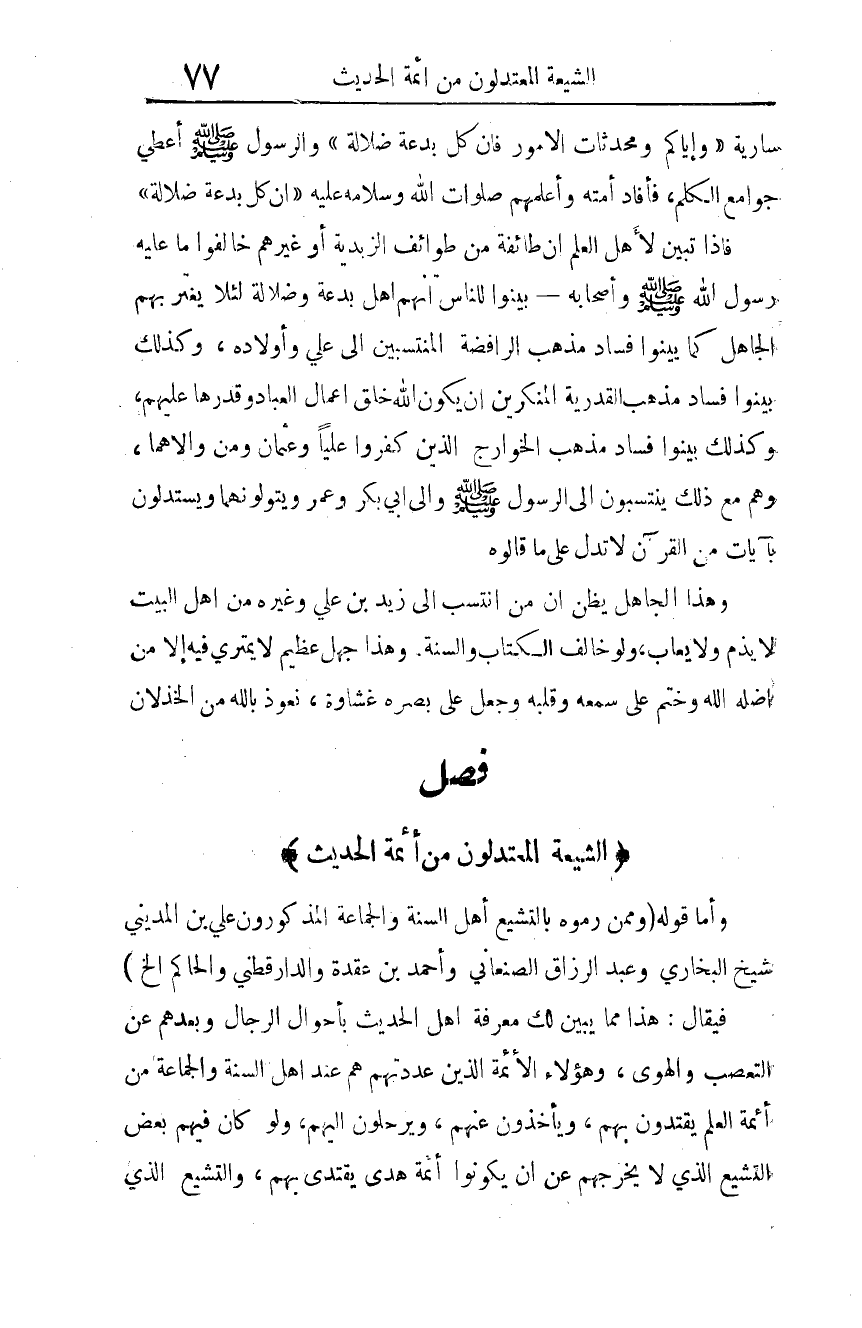 الشيعة المعتدلون من أئمة الحديث ٧٧
سارية « وإياكم ومحدثات الامور فان كل بدعة ضلالة » والرسول ﷺ أعطي
جوامع الكلم، فأفاد أمته وأعلمهم صلوات الله وسلامه عليه «ان كل بدعة ضلالة»
فاذا تبين لأهل العلم ان طائفة من طوائف الزيدية أو غيرهم خالفوا ما عليه
رسول الله ﷺ وأصحابه — بينوا للناس انهم اهل بدعة وضلالة لئلا يغتر بهم
الجاهل كما بينوا فساد مذهب الرافضة المنتسبين الى علي وأولاده ، وكذلك
بينوا فساد مذهب القدرية المنكرين ان يكون الله خلق اعمال العباد وقدرها عليهم،
وكذلك بينوا فساد مذهب الخوارج الذين كفروا علياً وعثمان ومن والاهما ،
وهم مع ذلك ينتسبون الى الرسول ﷺ والى ابي بكر وعمر ويتولونهما ويستدلون
بآيات من القرآن لا تدل على ما قالوه
وهذا الجاهل يظن ان من انتسب الى زيد بن علي وغيره من اهل البيت
لا يذم ولا يعاب، ولو خالف الكتاب والسنة. وهذا جهل عظيم لا يمتري فيه إلا من
اضله الله وختم على سمعه وقلبه وجعل على بصره غشاوة ، نعوذ بالله من الخذلان
فصل
﴿ الشيعة المعتدلون من أئمة الحديث ﴾
وأما قوله (وممن رموه بالتشيع أهل السنة والجماعة المذكورون علي بن المديني
شيخ البخاري وعبد الرزاق الصنعاني وأحمد بن عقدة والدارقطني والحاكم الخ )
فيقال : هذا مما يبين لك معرفة اهل الحديث بأحوال الرجال وبعدهم عن
التعصب والهوى ، وهؤلاء الأئمة الذين عددتهم هم عند اهل السنة والجماعة من
أئمة العلم يقتدون بهم ، ويأخذون عنهم ، ويرحلون اليهم، ولو كان فيهم بعض
التشيع الذي لا يخرجهم عن ان يكونوا أئمة هدى يقتدى بهم ، والتشيع الذي